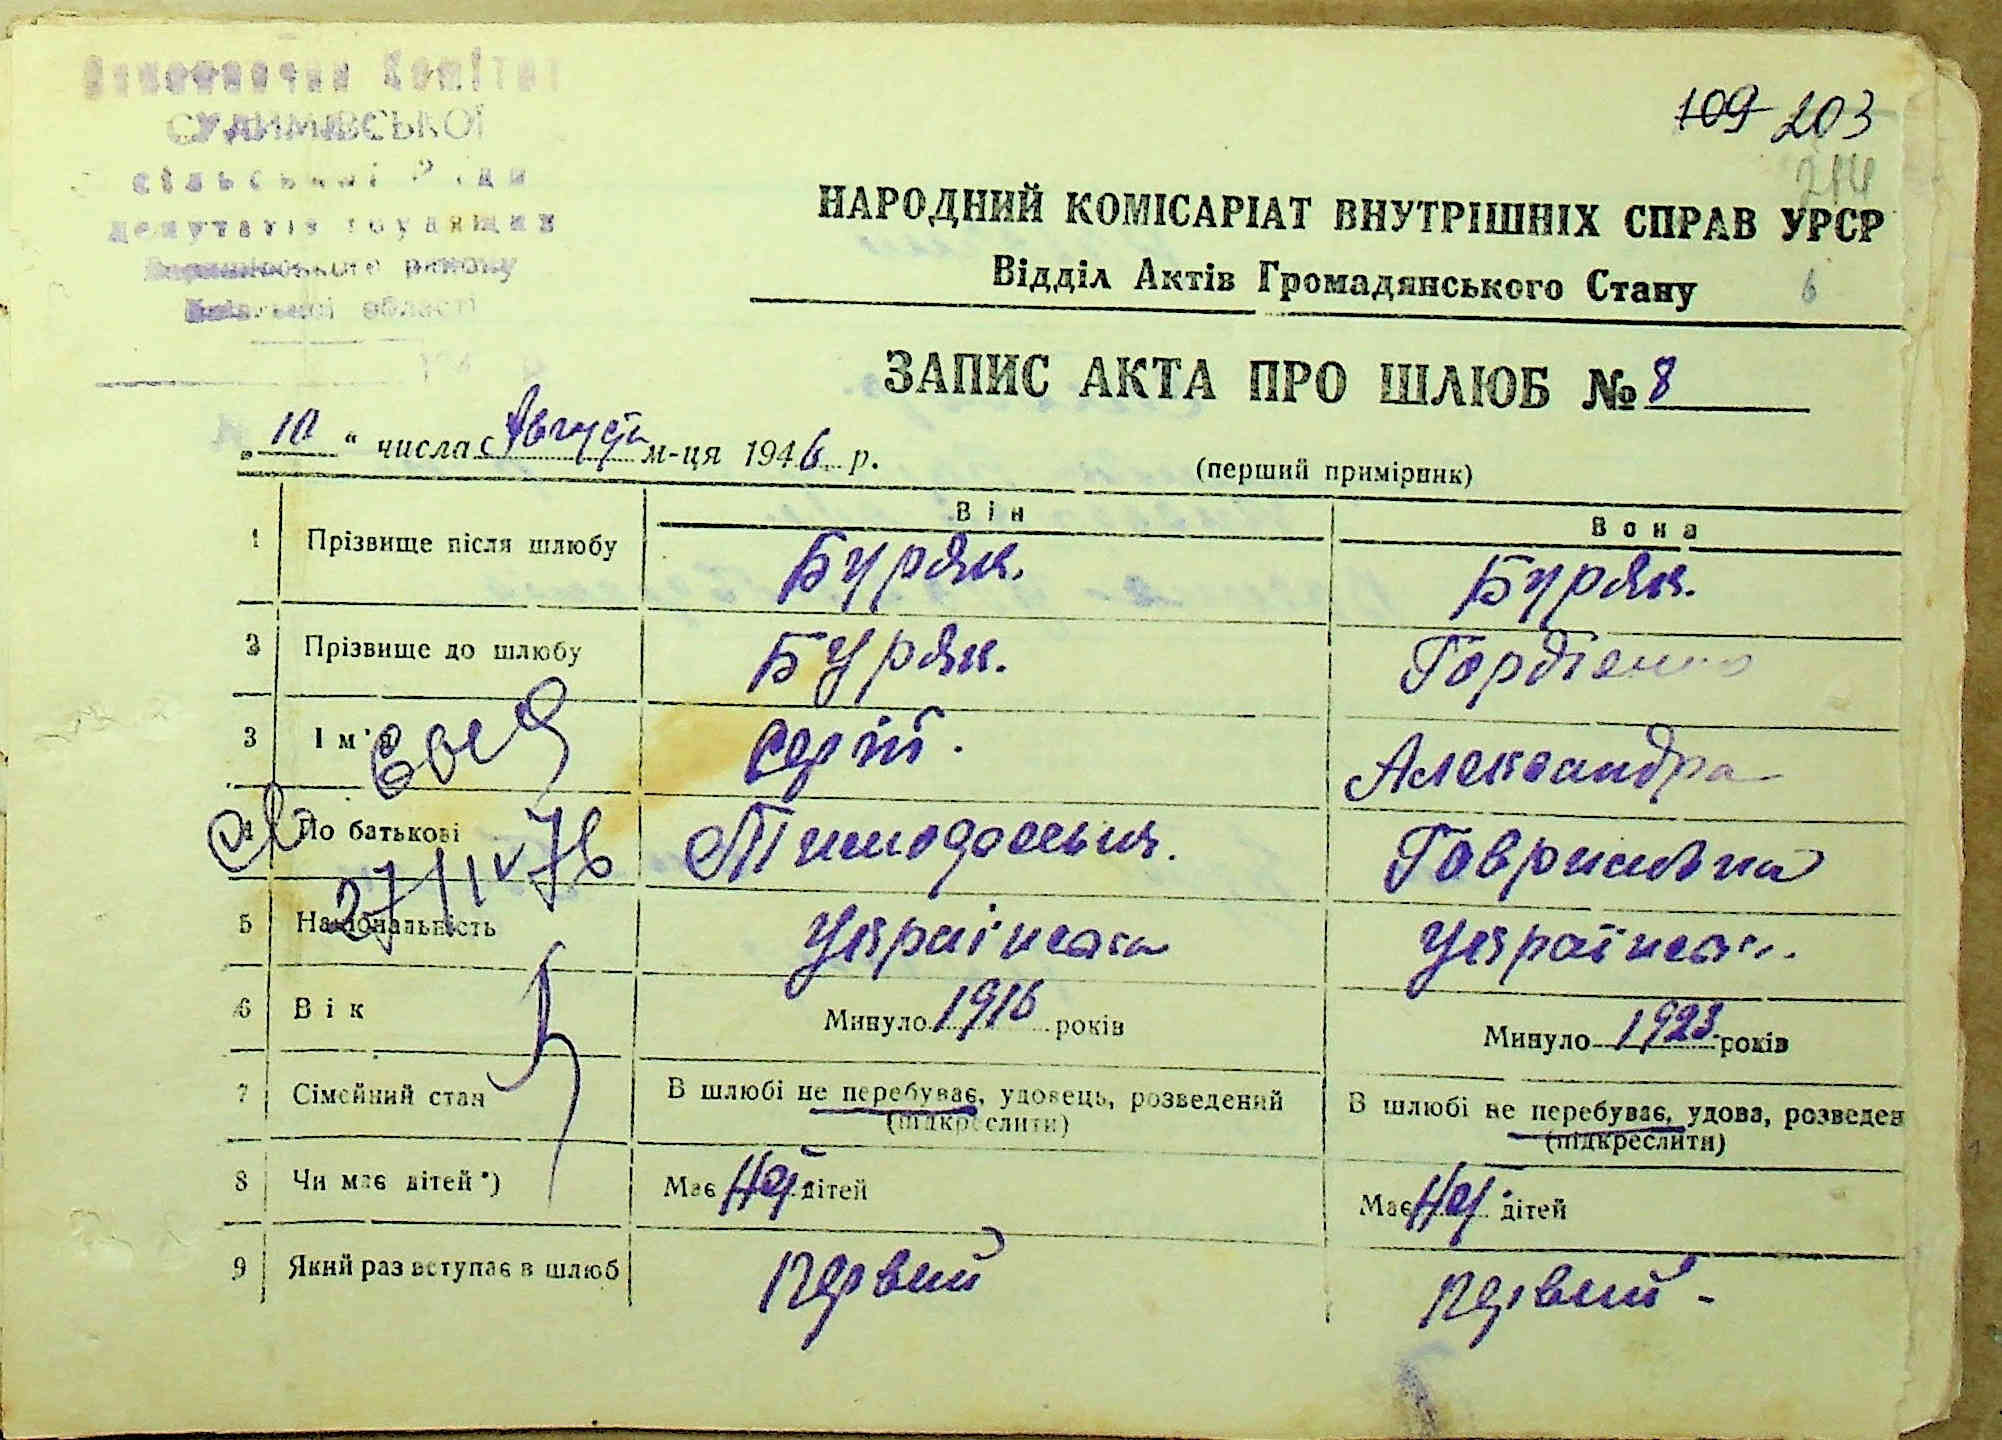 Виконавчий Комітет
СУЛИМІВСЬКОЇ
сільської Ради
депутатів трудящих
району
області
109 203
214
НАРОДНИЙ КОМІСАРІАТ ВНУТРІШНІХ СПРАВ УРСР
Відділ Актів Громадянського Стану 6
ЗАПИС АКТА ПРО ШЛЮБ № 8
„ 10 “ числа Август м-ця 1946 р.
(перший примірник)
Він Вона
1 Прізвище після шлюбу Буряк. Буряк.
2 Прізвище до шлюбу Буряк. Гордієнко
3 Ім'я Сергій. Александра
4 По батькові Гаврилівна
27/IV 76
5 Національність Українець Українка.
6 Вік Минуло 1916 років Минуло 1923 років
7 Сімейний стан В шлюбі не перебуває, удовець, розведений В шлюбі не перебуває, удова, розведен
(підкреслити) (підкреслити)
8 Чи має дітей *) Має Неї дітей Має Неї дітей
9 Який раз вступає в шлюб первий первий -